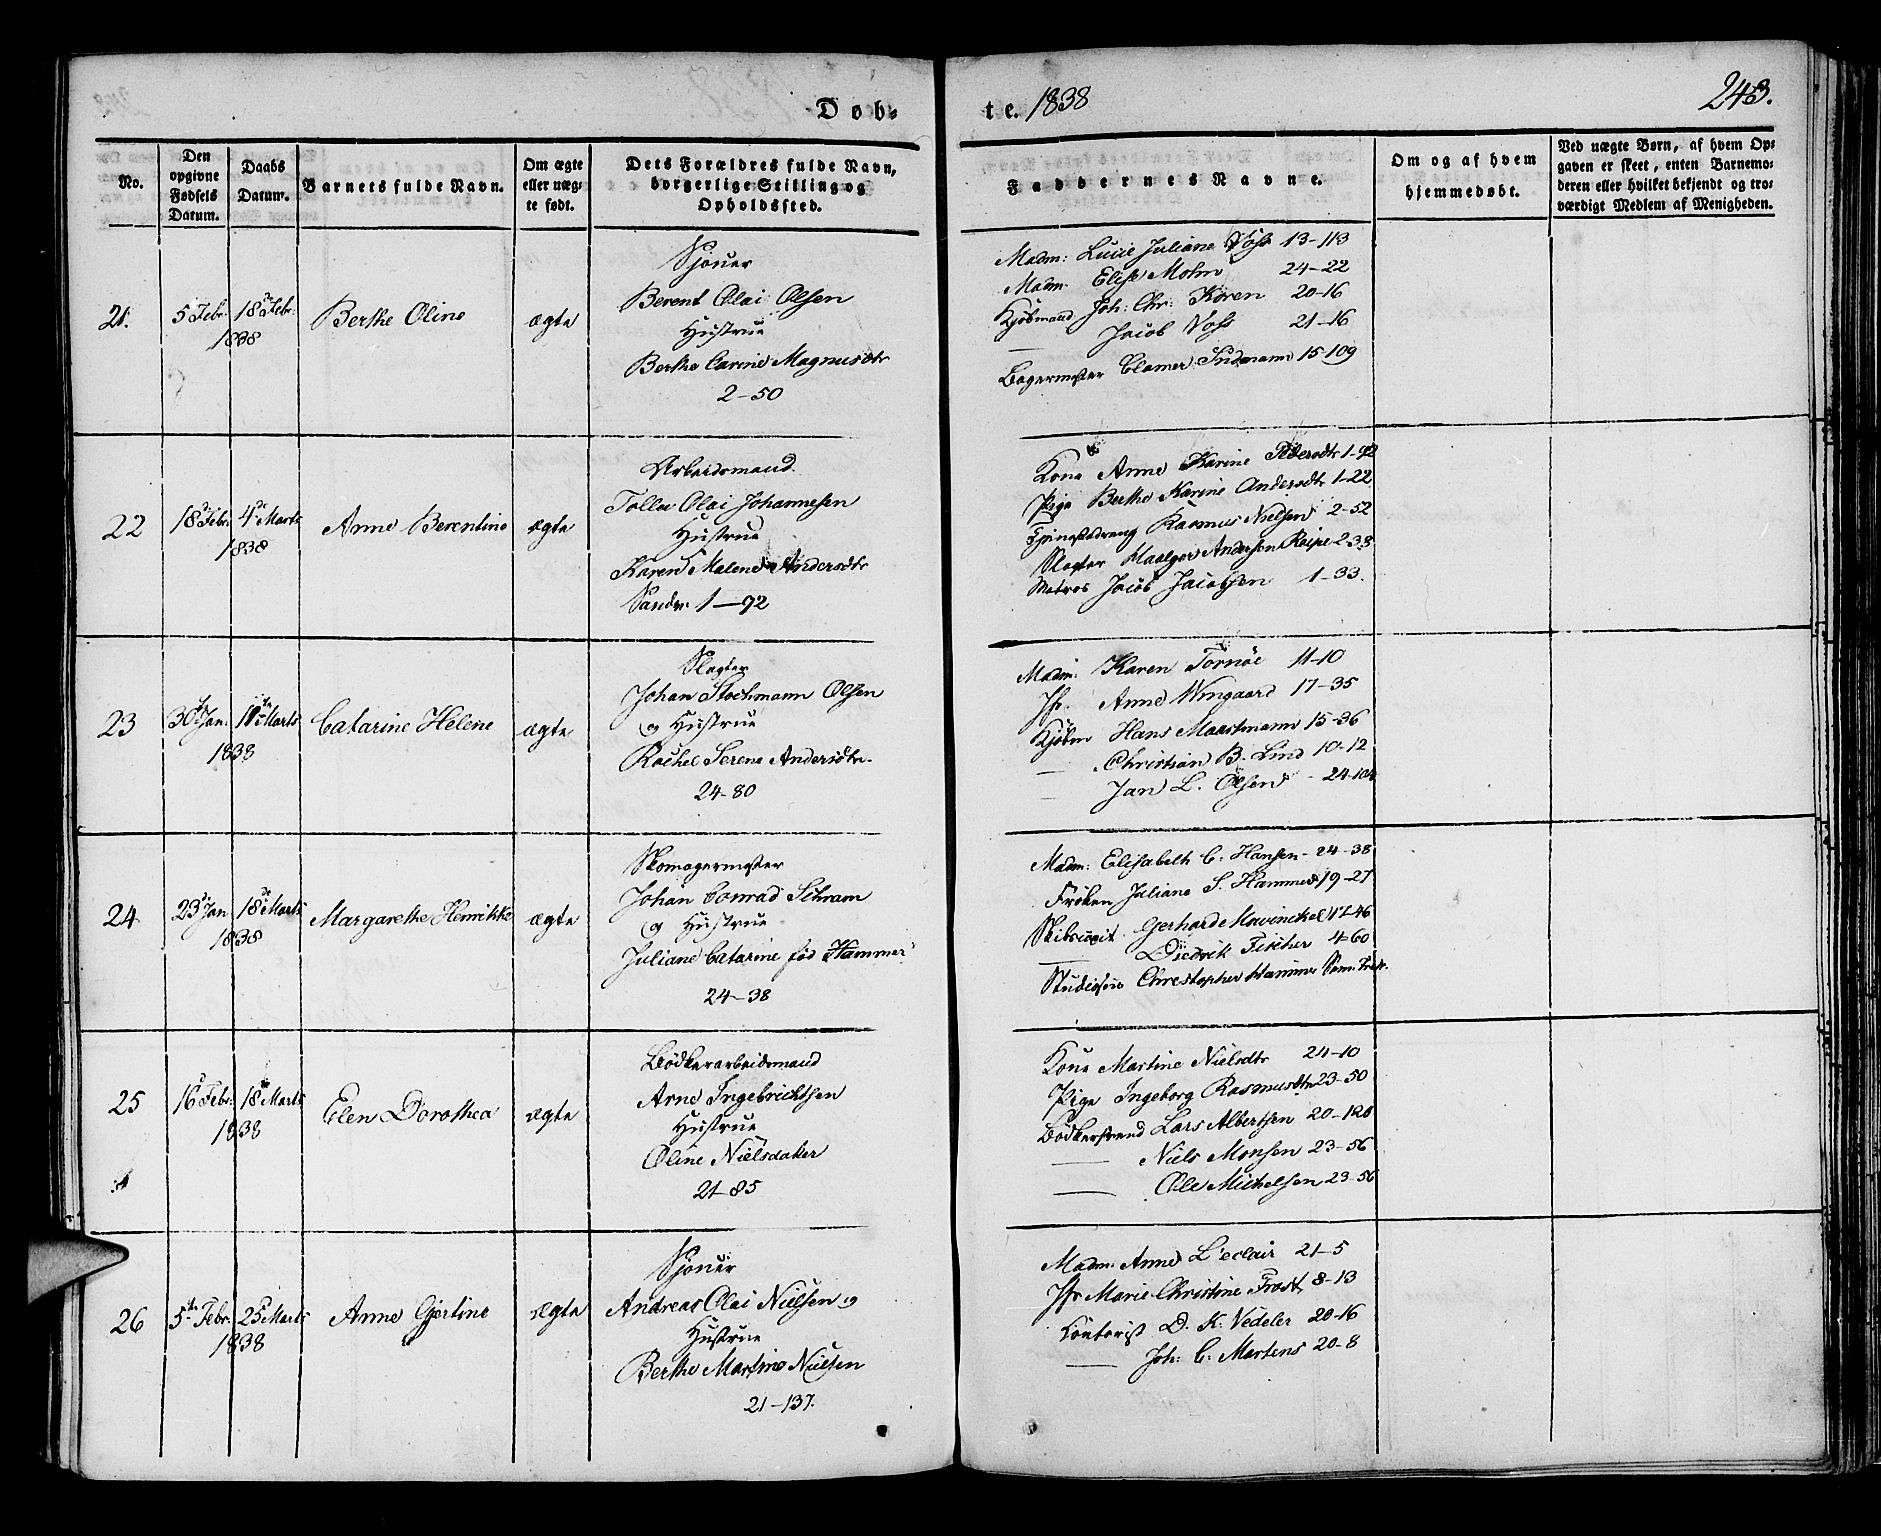 Døb-
te. 1838
243.
No.
Den opgivne Fødsels Datum.
Daabs Datum.
Barnets fulde Navn.
Om ægte eller uæg-te født.
Dets Forældres fulde Navn, borgerlige Stilling og Opholdssted.
Faddernes Navne.
Om og af hvem hjemmedøbt.
Ved uægte Børn, af hvem Op-gaven er skeet, enten Barnemo-deren eller hvilket bekjendt og tro-værdigt Medlem af Menigheden.
21. 5 Febr: 18de Febr: 1838
Berthe Oline
ægte
Sjouer
Berent Olai Olsen
Hustrue
Berthe Carine Magnusdtr
2-50
Madm: Lucie Juliane Voss 13-113
Madm. Elise Mohn 24-22
Kjøbmand Joh: Chr: Koren 20-16
— Jacob Voss 21-16
Bagermester Clamer 15-109
22 18de Febr. 4de Marts 1838
Anne Berentine
ægte
Arbeidsmand
Tollev Olai Johannesen
Hustrue
Karen Malene Andersdtr
Sandv. 1-92
Kone Anne Karine Pedersdtr 1-92
Pige Berthe Karine Andersdtr 1-22
Tjenestedreng Rasmus Nielsen 2-52
Slagter Andersen 2-33
Matros Jacob Jacobsen 1-33.
23 30te Jan: 11te Marts 1838
Catarine Helene
ægte
Slagter
Johan Stockmann Olsen
og Hustrue
Rachel Serene Andersdtr.
24-80
Madm: Karen Tornöe 11-10
Jfr. Anne Wingaard 17-35
Kjøbm Hans Maartmann 15-36
— Christian B. Lind 10-12
— Jan L. Olsen - 24-104
24 23de Jan 18de Marts 1838
Margarethe Henrikke
ægte
Skomagermester
Johan Conrad Schram
og Hustrue
Juliane Catarine fød Hammer
24-38
Madm: Elisabeth C. Hansen - 24-38
Frøken Juliane S. Hammer 19-27
Gerhard Mowinckel 17-46
— Diedrik Fischer 4-60
Christopher Hammer
25 16 Febr: 18de Marts 1838
Elen Dorothea
ægte
Bødkerarbeidsmand
Arne Ingebrichtsen
Hustrue
Oline Nielsdatter
21-85
Kone Martine Nielsdtr 24-10
Pige Ingeborg Rasmusdtr 23-50
Bødkersvend Lars Albertsen 20-120
— Niels Monsen 23-56
— Ole Michelsen 23-56
26 5te Febr. 25 Marts 1838
Anne Gjertine
ægte
Sjouer
Andreas Olai Nielsen og
Hustrue
Berthe Martine Nielsen
21-137.
Madm. Anne L'eclair 21-5
Jfr Marie Christine Frost 8-13
Kontorist D. K. Vedeler 20-16
— Joh: C. Martens 20-8